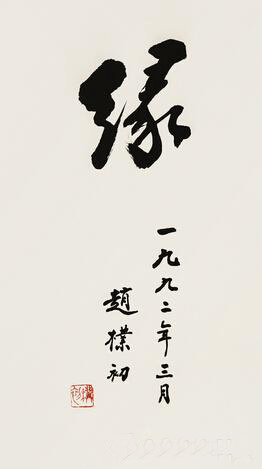 缘
一九九二年三月
趙樸初